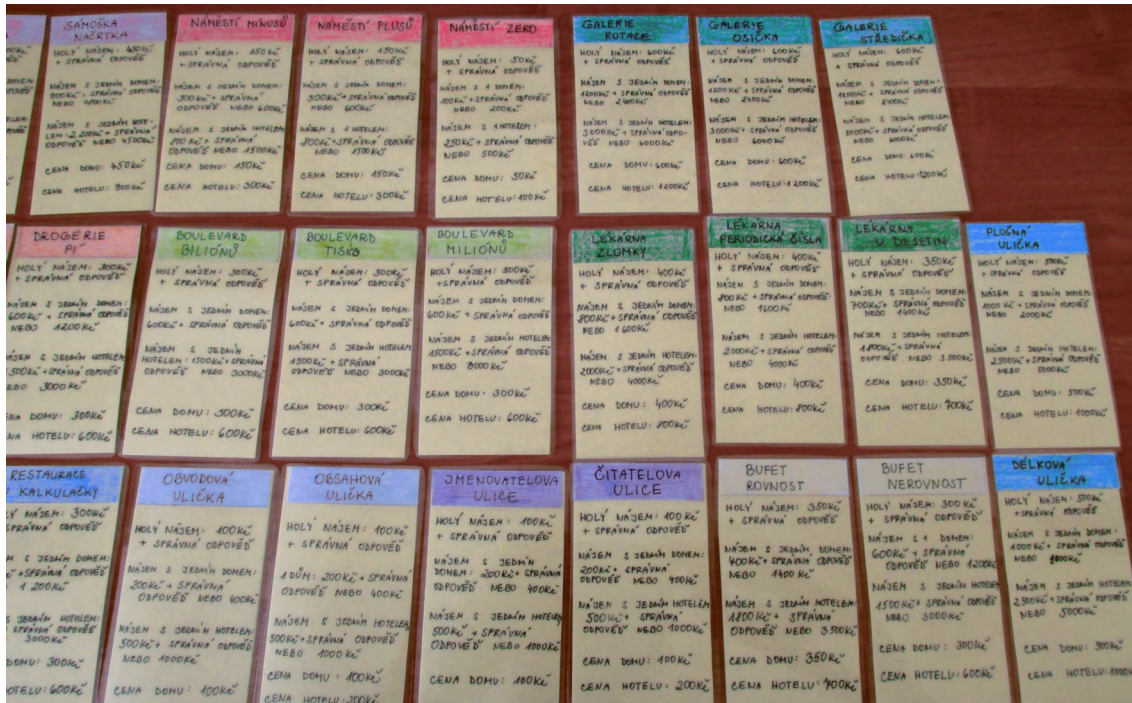 SAMOŠKA
NAČRTKA
HOLÝ NÁJEM: 450Kč
+ SPRÁVNÁ ODPOVĚĎ
NÁJEM S JEDNÍM DOMEM:
900Kč + SPRÁVNÁ ODPOVĚĎ
NEBO
NÁJEM S JEDNÍM HOTE-
LEM: 2 200Kč + SPRÁVNÁ
ODPOVĚĎ NEBO 4500Kč
CENA DOMU: 450Kč
CENA HOTELU: 900Kč
NÁMĚSTÍ MÍNUSŮ
HOLÝ NÁJEM: 150Kč
+ SPRÁVNÁ ODPOVĚĎ
NÁJEM S JEDNÍM DOMEM:
300Kč + SPRÁVNÁ
ODPOVĚĎ NEBO 600Kč
NÁJEM S JEDNÍM HOTELEM:
800Kč + SPRÁVNÁ
ODPOVĚĎ NEBO 1500Kč
CENA DOMU: 150Kč
CENA HOTELU: 300Kč
NÁMĚSTÍ PLUSŮ
HOLÝ NÁJEM: 150Kč
+ SPRÁVNÁ ODPOVĚĎ
NÁJEM S JEDNÍM DOMEM:
300Kč + SPRÁVNÁ ODPOVĚĎ
NEBO 600Kč
NÁJEM S 1 HOTELEM:
800Kč + SPRÁVNÁ ODPOVĚĎ
NEBO 1500Kč
CENA DOMU: 150Kč
CENA HOTELU: 300Kč
NÁMĚSTÍ ZERO
HOLÝ NÁJEM: 50Kč
+ SPRÁVNÁ ODPOVĚĎ
NÁJEM S 1 DOMEM:
100Kč + SPRÁVNÁ ODPOVĚĎ
NEBO 200Kč
NÁJEM S 1 HOTELEM:
250Kč + SPRÁVNÁ ODPOVĚĎ
NEBO 500Kč
CENA DOMU: 50Kč
CENA HOTELU: 100Kč
GALERIE
ROTACE
HOLÝ NÁJEM: 600Kč
+ SPRÁVNÁ ODPOVĚĎ
NÁJEM S JEDNÍM DOMEM:
1200Kč + SPRÁVNÁ ODPOVĚĎ
NEBO 2400Kč
NÁJEM S JEDNÍM HOTELEM:
3000Kč + SPRÁVNÁ ODPO-
VĚĎ NEBO 6000Kč
CENA DOMU: 600Kč
CENA HOTELU: 1200Kč
GALERIE
OSIČKA
HOLÝ NÁJEM: 600Kč
+ SPRÁVNÁ ODPOVĚĎ
NÁJEM S JEDNÍM DOMEM:
1200Kč + SPRÁVNÁ ODPOVĚĎ
NEBO 2400Kč
NÁJEM S JEDNÍM HOTELEM:
3000Kč + SPRÁVNÁ ODPOVĚĎ
NEBO 6000Kč
CENA DOMU: 600Kč
CENA HOTELU: 1200Kč
GALERIE
STŘEDIČKA
HOLÝ NÁJEM: 600Kč
+ SPRÁVNÁ ODPOVĚĎ
NÁJEM S JEDNÍM DOMEM:
1200Kč + SPRÁVNÁ ODPOVĚĎ
NEBO 2400Kč
NÁJEM S JEDNÍM HOTELEM:
3000Kč + SPRÁVNÁ ODPOVĚĎ
NEBO 6000Kč
CENA DOMU: 600Kč
CENA HOTELU: 1200Kč
DROGERIE
PÍ
HOLÝ NÁJEM: 300Kč
+ SPRÁVNÁ ODPOVĚĎ
NÁJEM S JEDNÍM DOMEM:
600Kč + SPRÁVNÁ ODPOVĚĎ
NEBO 1200Kč
S JEDNÍM HOTELEM:
+ SPRÁVNÁ ODPOVĚĎ
NEBO 3000Kč
CENA DOMU: 300Kč
CENA HOTELU: 600Kč
BOULEVARD
BILIÓNŮ
HOLÝ NÁJEM: 300Kč
+ SPRÁVNÁ ODPOVĚĎ
NÁJEM S JEDNÍM DOMEM:
600Kč + SPRÁVNÁ ODPOVĚĎ
NÁJEM S JEDNÍM
HOTELEM: 1500Kč + SPRÁVNÁ
ODPOVĚĎ NEBO 3000Kč
CENA DOMU: 300Kč
CENA HOTELU: 600Kč
BOULEVARD
HOLÝ NÁJEM: 300Kč
+ SPRÁVNÁ ODPOVĚĎ
NÁJEM S JEDNÍM DOMEM:
600Kč + SPRÁVNÁ ODPOVĚĎ
NÁJEM S JEDNÍM HOTELEM:
1500Kč + SPRÁVNÁ
ODPOVĚĎ NEBO 3000Kč
CENA DOMU: 300Kč
CENA HOTELU: 600Kč
BOULEVARD
MILIONŮ
HOLÝ NÁJEM: 300Kč
+ SPRÁVNÁ ODPOVĚĎ
NÁJEM S JEDNÍM DOMEM:
600Kč + SPRÁVNÁ ODPOVĚĎ
NÁJEM S JEDNÍM HOTELEM:
1500Kč + SPRÁVNÁ ODPOVĚĎ
NEBO 3000Kč
CENA DOMU: 300Kč
CENA HOTELU: 600Kč
LÉKÁRNA
ZLOMKY
HOLÝ NÁJEM: 400Kč
+ SPRÁVNÁ ODPOVĚĎ
NÁJEM S JEDNÍM DOMEM:
800Kč + SPRÁVNÁ ODPOVĚĎ
NEBO 1600Kč
NÁJEM S JEDNÍM HOTELEM:
2000Kč + SPRÁVNÁ ODPOVĚĎ
NEBO 4000Kč
CENA DOMU: 400Kč
CENA HOTELU: 800Kč
LÉKÁRNA
PERIODICKÁ ČÍSLA
HOLÝ NÁJEM: 400Kč
+ SPRÁVNÁ ODPOVĚĎ
NÁJEM S JEDNÍM DOMEM:
800Kč + SPRÁVNÁ ODPOVĚĎ
NEBO 1600Kč
NÁJEM S JEDNÍM HOTELEM:
2000Kč + SPRÁVNÁ ODPOVĚĎ
NEBO 4000Kč
CENA DOMU: 400Kč
CENA HOTELU: 800Kč
LÉKÁRNA
U DESETIN
HOLÝ NÁJEM: 350Kč
+ SPRÁVNÁ ODPOVĚĎ
NÁJEM S JEDNÍM DOMEM:
700Kč + SPRÁVNÁ ODPOVĚĎ
NEBO 1400Kč
NÁJEM S JEDNÍM HOTELEM:
1800Kč + SPRÁVNÁ
ODPOVĚĎ NEBO 3500Kč
CENA DOMU: 350Kč
CENA HOTELU: 700Kč
PLOŠNÁ
ULIČKA
HOLÝ NÁJEM: 500Kč
+ SPRÁVNÁ ODPOVĚĎ
NÁJEM S JEDNÍM DOMEM:
1000Kč + SPRÁVNÁ ODPOVĚĎ
NEBO 2000Kč
NÁJEM S JEDNÍM HOTELEM:
2500Kč + SPRÁVNÁ ODPOVĚĎ
NEBO 5000Kč
CENA DOMU: 500Kč
CENA HOTELU: 1000Kč
RESTAURACE
U KALKULAČKY
HOLÝ NÁJEM: 300Kč
SPRÁVNÁ ODPOVĚĎ
S JEDNÍM DOMEM:
+ SPRÁVNÁ ODPOVĚĎ
1 200Kč
S JEDNÍM HOTELEM:
SPRÁVNÁ ODPOVĚĎ
3000Kč
DOMU: 300Kč
HOTELU: 600Kč
OBVODOVÁ
ULIČKA
HOLÝ NÁJEM: 100Kč
+ SPRÁVNÁ ODPOVĚĎ
NÁJEM S JEDNÍM DOMEM:
200Kč + SPRÁVNÁ
ODPOVĚĎ NEBO 400Kč
NÁJEM S JEDNÍM HOTELEM:
500Kč + SPRÁVNÁ ODPOVĚĎ
NEBO 1000Kč
CENA DOMU: 100Kč
OBSAHOVÁ
ULIČKA
HOLÝ NÁJEM: 100Kč
+ SPRÁVNÁ ODPOVĚĎ
1 DŮM: 200Kč + SPRÁVNÁ
ODPOVĚĎ NEBO 400Kč
NÁJEM S JEDNÍM HOTELEM:
500Kč + SPRÁVNÁ ODPOVĚĎ
NEBO 1000Kč
CENA DOMU: 100Kč
CENA HOTELU: 200Kč
JMENOVATELOVA
ULICE
HOLÝ NÁJEM: 100Kč
+ SPRÁVNÁ ODPOVĚĎ
NÁJEM S JEDNÍM
DOMEM: 200Kč + SPRÁVNÁ
ODPOVĚĎ NEBO 400Kč
NÁJEM S JEDNÍM HOTELEM:
500Kč + SPRÁVNÁ
ODPOVĚĎ NEBO 1000Kč
CENA DOMU: 100Kč
ČITATELOVA
ULICE
HOLÝ NÁJEM: 100Kč
+ SPRÁVNÁ ODPOVĚĎ
NÁJEM S JEDNÍM DOMEM:
200Kč + SPRÁVNÁ
ODPOVĚĎ NEBO 400Kč
NÁJEM S JEDNÍM HOTELEM:
500Kč + SPRÁVNÁ
ODPOVĚĎ NEBO 1000Kč
CENA DOMU: 100Kč
CENA HOTELU: 200Kč
BUFET
ROVNOST
HOLÝ NÁJEM: 350Kč
+ SPRÁVNÁ ODPOVĚĎ
NÁJEM S JEDNÍM DOMEM:
400Kč + SPRÁVNÁ ODPOVĚĎ
NEBO 1400Kč
NÁJEM S JEDNÍM HOTELEM:
1800Kč + SPRÁVNÁ
ODPOVĚĎ NEBO 3500Kč
CENA DOMU: 350Kč
CENA HOTELU: 700Kč
BUFET
NEROVNOST
HOLÝ NÁJEM: 300Kč
+ SPRÁVNÁ ODPOVĚĎ
NÁJEM S 1 DOMEM:
600Kč + SPRÁVNÁ
ODPOVĚĎ NEBO 1200Kč
NÁJEM S JEDNÍM HOTELEM:
1500Kč + SPRÁVNÁ ODPOVĚĎ
NEBO 3000Kč
CENA DOMU: 300Kč
CENA HOTELU: 600Kč
DÉLKOVÁ
ULIČKA
HOLÝ NÁJEM: 500Kč
+ SPRÁVNÁ ODPOVĚĎ
NÁJEM S JEDNÍM DOMEM:
1000Kč + SPRÁVNÁ ODPOVĚĎ
NEBO
NÁJEM S JEDNÍM HOTELEM:
2500Kč + SPRÁVNÁ ODPOVĚĎ
NEBO 5000Kč
CENA DOMU: 500Kč
CENA HOTELU: 1000Kč